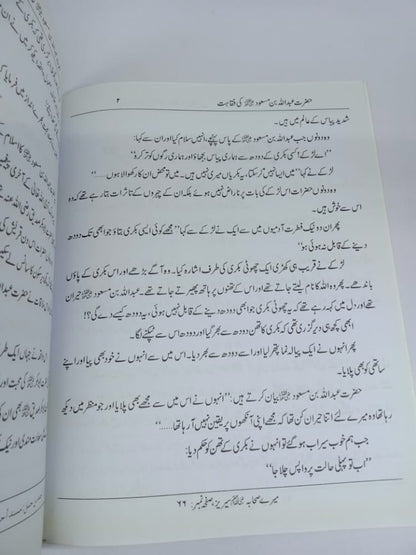 حضرت عبداللہ بن مسعود رضی اللہ عنہ کی فقاہت ۲
شدید پیاس کے عالم میں ہیں۔
وہ دونوں جب عبداللہ بن مسعود رضی اللہ عنہ کے پاس پہنچے، انہیں سلام کیا اور ان سے کہا:
”اے لڑکے! کسی بکری کے دودھ سے ہماری پیاس بجھاؤ اور ہماری رگوں کو تر کرو“
لڑکے نے کہا: ”میں ایسا نہیں کر سکتا، یہ بکریاں میری نہیں ہیں۔ میں تو محض ان کا رکھوالا ہوں.....“
وہ دونوں حضرات اس لڑکے کی بات پر ناراض نہیں ہوئے بلکہ ان کے چہروں کے تاثرات بتا رہے تھے کہ وہ
اس سے خوش ہیں۔
پھر ان دو نیک فطرت آدمیوں میں سے ایک نے لڑکے سے کہا ”مجھے کوئی ایسی بکری بتاؤ جو ابھی تک دودھ
دینے کے قابل نہ ہوئی ہو“
لڑکے نے قریب ہی کھڑی ایک چھوٹی بکری کی طرف اشارہ کیا۔ وہ آگے بڑھے اور اس بکری کے پاؤں
باندھے۔ پھر وہ اللہ کا نام لیتے جاتے تھے اور اس کے تھنوں پر ہاتھ پھیرتے جاتے تھے۔ عبداللہ بن مسعود رضی اللہ عنہ حیران
تھا اور دل میں کہہ رہے تھے کہ یہ چھوٹی بکری جو ابھی دودھ دینے کے قابل نہیں ہوئی، یہ دودھ کیسے دے گی؟!
ابھی کچھ ہی دیر گزری تھی کہ بکری کا تھن دودھ سے بھر گیا اور دودھ اس سے ٹپکنے لگا۔
پھر انہوں نے ایک پیالہ نما پتھر لیا اور اسے دودھ سے بھر دیا۔ اس میں سے انہوں نے خود بھی پیا اور اپنے
ساتھی کو بھی پلایا۔
حضرت عبداللہ بن مسعود رضی اللہ عنہ بیان کرتے ہیں: ”انہوں نے اس میں سے مجھے بھی پلایا اور جو منظر میں دیکھ
رہا تھا وہ میرے لئے اتنا حیران کن تھا کہ مجھے اپنی آنکھوں پر یقین نہیں آ رہا تھا......“
جب ہم خوب سیراب ہو گئے تو انہوں نے بکری کے تھن کو حکم دیا:
”اب تو پہلی حالت پر واپس چلا جا“
میرے صحابہ رضی اللہ عنہم سیریز، صفحہ نمبر: ۶۶